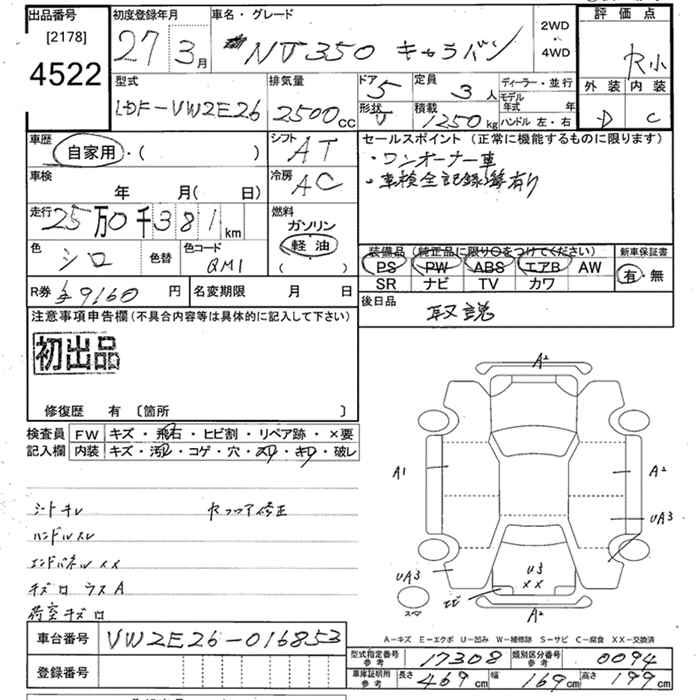 出品番号
[2178]
4522
初度登録年月
27 3月
車名・グレード
NV350 キャラバン
2WD
・
4WD
評価点
R小
外装 内装
D C
型式
LDF-VW2E26
排気量
2500cc
ドア 5
形状 V
定員 3人
積載 1250kg
ディーラー・並行
モデル年式 年
ハンドル 左・右
車歴 自家用・( )
シフト AT
車検 年 月( 日)
冷房 AC
走行 25万0千381km
燃料
ガソリン
軽油
( )
色 シロ 色替
色コード QM1
R券 9160円
名変期限 月 日
セールスポイント(正常に機能するものに限ります)
・ワンオーナー車
・車検全記録簿有り
装備品(純正品に限り○をつけてください)
PS PW ABS エアB AW
SR ナビ TV カワ
新車保証書
有・無
後日品 取説
注意事項申告欄(不具合内容等は具体的に記入して下さい)
初出品
修復歴 有 〔箇所 〕
検査員記入欄
FW キズ・飛石・ヒビ割・リペア跡・×要
内装 キズ・汚レ・コゲ・穴・スレ・キレ・破レ
シートキレ
ハンドルスレ
荷室キズ
A2
A1
A2
UA3
UA3
U3
XX
A2
スマ
A-キズ E-エクボ U-凹み W-補修跡 S-サビ C-腐食 XX-交換済
車台番号 VW2E26-016853
登録番号
型式指定番号 参考 17308
類別区分番号 参考 0094
車庫証明用 参考 長さ 469cm 幅 169cm 高さ 199cm